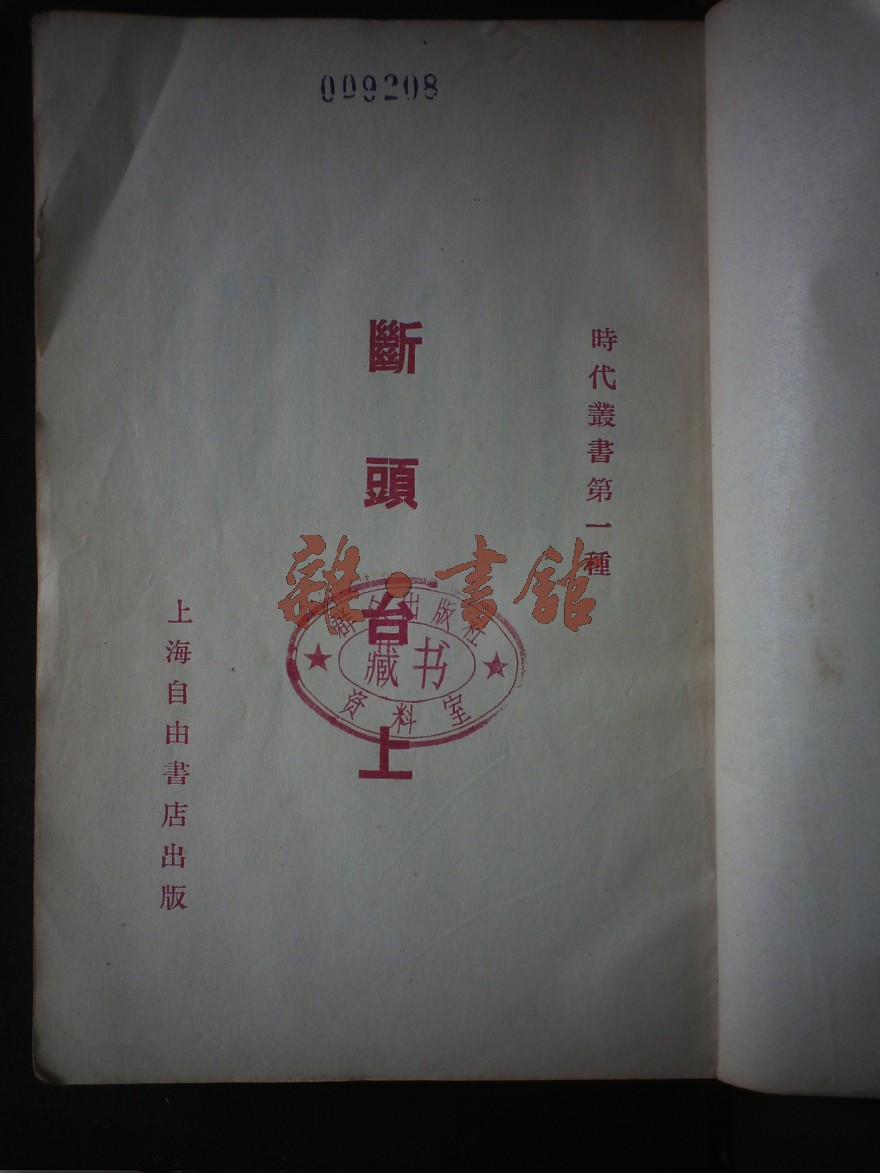 009208
時代叢書第一種
斷頭台上
上海自由書店出版
雜·書館
群众出版社
藏书
资料室